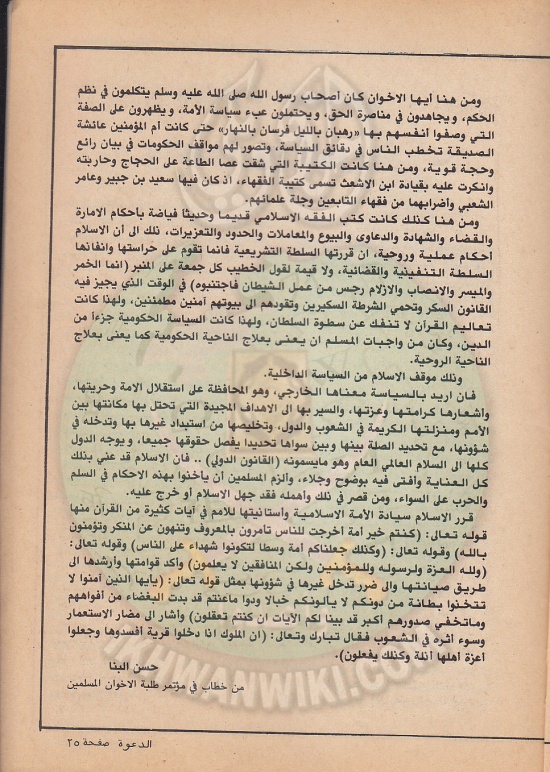 ومن هنا أيها الاخوان كان أصحاب رسول الله صلى الله عليه وسلم يتكلمون في نظم
الحكم، ويجاهدون في مناصرة الحق، ويحتملون عبء سياسة الأمة، ويظهرون على الصفة
التي وصفوا أنفسهم بها «رهبان بالليل فرسان بالنهار» حتى كانت أم المؤمنين عائشة
الصديقة تخطب الناس في دقائق السياسة، وتصور لهم مواقف الحكومات في بيان رائع
وحجة قوية، ومن هنا كانت الكتيبة التي شقت عصا الطاعة على الحجاج وحاربته
وانكرت عليه بقيادة ابن الاشعث تسمى كتيبة الفقهاء، اذ كان فيها سعيد بن جبير وعامر
الشعبي وأضرابهما من فقهاء التابعين وجلة علمائهم.
ومن هنا كذلك كانت كتب الفقه الاسلامي قديما وحديثا فياضة بأحكام الامارة
والقضاء والشهادة والدعاوى والبيوع والمعاملات والحدود والتعزيرات، ذلك الى أن الاسلام
أحكام عملية وروحية، ان قررتها السلطة التشريعية فانما تقوم على حراستها وانفاذها
السلطة التنفيذية والقضائية، ولا قيمة لقول الخطيب كل جمعة على المنبر (انما الخمر
والميسر والانصاب والازلام رجس من عمل الشيطان فاجتنبوه) في الوقت الذي يجيز فيه
القانون السكر وتحمي الشرطة السكيرين وتقودهم الى بيوتهم آمنين مطمئنين، ولهذا كانت
تعاليم القرآن لا تنفك عن سطوة السلطان، ولهذا كانت السياسة الحكومية جزءاً من
الدين، وكان من واجبات المسلم ان يعنى بعلاج الناحية الحكومية كما يعنى بعلاج
الناحية الروحية.
وذلك موقف الاسلام من السياسة الداخلية.
فان اريد بالسياسة معناها الخارجي، وهو المحافظة على استقلال الامة وحريتها،
وأشعارها كرامتها وعزتها، والسير بها الى الاهداف المجيدة التي تحتل بها مكانتها بين
الأمم ومنزلتها الكريمة في الشعوب والدول، وتخليصها من استبداد غيرها بها وتدخله في
شؤونها، مع تحديد الصلة بينها وبين سواها تحديدا يفصل حقوقها جميعا، ويوجه الدول
كلها الى السلام العالمي العام وهو مايسمونه (القانون الدولي) .. فان الاسلام قد عني بذلك
كل العناية وأفتى فيه بوضوح وجلاء، والزم المسلمين أن يأخذوا بهذه الاحكام في السلم
والحرب على السواء، ومن قصر في ذلك وأهمله فقد جهل الاسلام أو خرج عليه.
قرر الاسلام سيادة الأمة الاسلامية وأستاذيتها للأمم في آيات كثيرة من القرآن منها
قوله تعالى: (كنتم خير أمة أخرجت للناس تأمرون بالمعروف وتنهون عن المنكر وتؤمنون
بالله) وقوله تعالى: (وكذلك جعلناكم أمة وسطا لتكونوا شهداء على الناس) وقوله تعالى:
(ولله العزة ولرسوله وللمؤمنين ولكن المنافقين لا يعلمون) وأكد قوامتها وأرشدها الى
طريق صيانتها والى ضرر تدخل غيرها في شؤونها بمثل قوله تعالى: (يأيها الذين آمنوا لا
تتخذوا بطانة من دونكم لا يألونكم خبالا ودوا ماعنتم قد بدت البغضاء من أفواههم
وماتخفي صدورهم أكبر قد بينا لكم الآيات ان كنتم تعقلون) وأشار الى مضار الاستعمار
وسوء أثره في الشعوب فقال تبارك وتعالى: (ان الملوك اذا دخلوا قرية أفسدوها وجعلوا
أعزة أهلها أذلة وكذلك يفعلون).
حسن البنا
من خطاب في مؤتمر طلبة الاخوان المسلمين
IKHWANWIKI.COM
الدعوة صفحة ٢٥